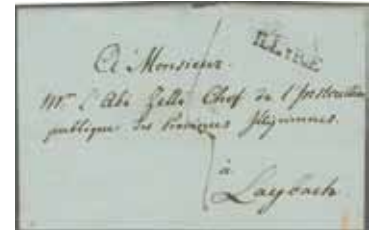 ILLIRE
A Monsieur.
Mr. l'Abé Zelli Chef de l'Instruction
publique des Provinces Illyriennes.
à
Laybach.